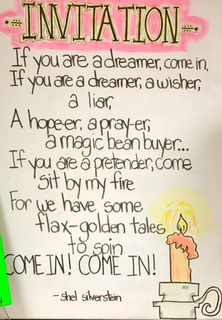 INVITATION
If you are a dreamer, come in,
If you are a dreamer, a wisher,
a liar,
A hope-er, a pray-er,
a magic bean buyer...
If you are a pretender, come
sit by my fire
For we have some
flax-golden tales
to spin
COME IN! COME IN!
-shel silverstein